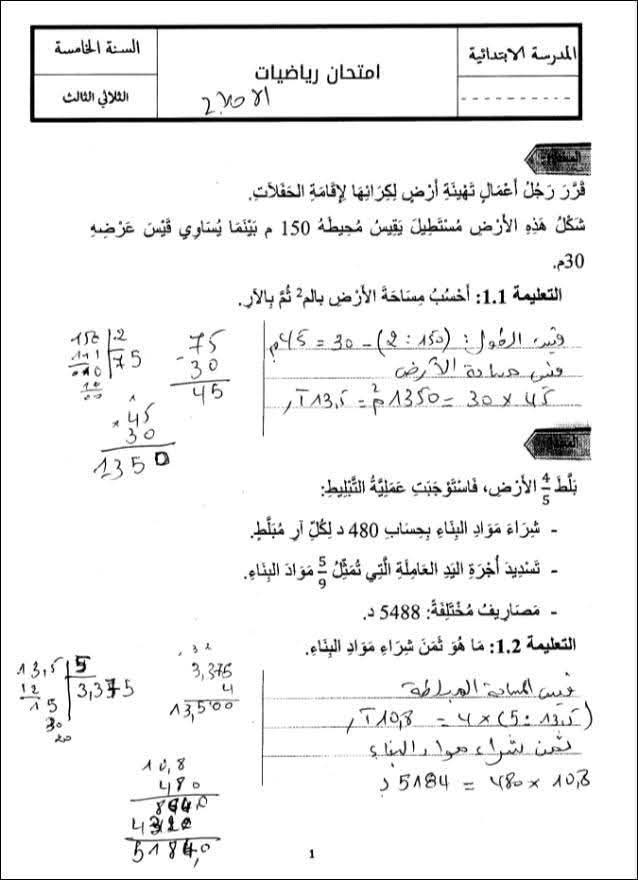 المدرسة الابتدائية
امتحان رياضيات
السنة الخامسة
الثلاثي الثالث
قَرَّرَ رَجُلُ أَعْمَالٍ تَهْيِئَةِ أَرْضٍ لِكِرَائِهَا لِإِقَامَةِ الحَفَلَاتِ.
شَكْلُ هَذِهِ الأَرْضِ مُسْتَطِيلَ يَقِيسُ مُحِيطُهُ 150 م بَيْنَمَا يُسَاوِي قَيْسَ عَرْضِهِ
30م.
التعليمة 1.1: أَحْسُبُ مِسَاحَةَ الأَرْضِ بالم² ثُمَّ بِالآرِ.
قيس الطول: (150 : 2) – 30 = 45م
قيس مساحة الأرض
45 × 30 = 1350م² = 13,5 آر
150 | 2
75
75
- 30
45
45
× 30
1350
بَلَّطَ 4/5 الأَرْضِ، فَاسْتَوْجَبَتِ عَمَلِيَّةُ التَّبْلِيطِ:
- شِرَاءَ مَوَادِ البِنَاءِ بِحِسَابِ 480 د لِكُلِّ آرِ مُبَلَّطٍ.
- تَسْدِيدَ أُجْرَةِ اليَدِ العَامِلَةِ الَّتِي تُمَثِّلُ 5/9 مَوَادَ البِنَاءِ.
- مَصَارِيفُ مُخْتَلِفَةٌ: 5488 د.
التعليمة 1.2: مَا هُوَ ثَمَنَ شِرَاءِ مَوَادِ البِنَاءِ.
قيس المساحة المبلطة
(13,5 : 5) × 4 = 10,8 آر
ثمن شراء مواد البناء
10,8 × 480 = 5184 د
13,5 | 5
12
15
30
20
3,375
3,375
4
13,500
10,8
480
8640
5184,0
1